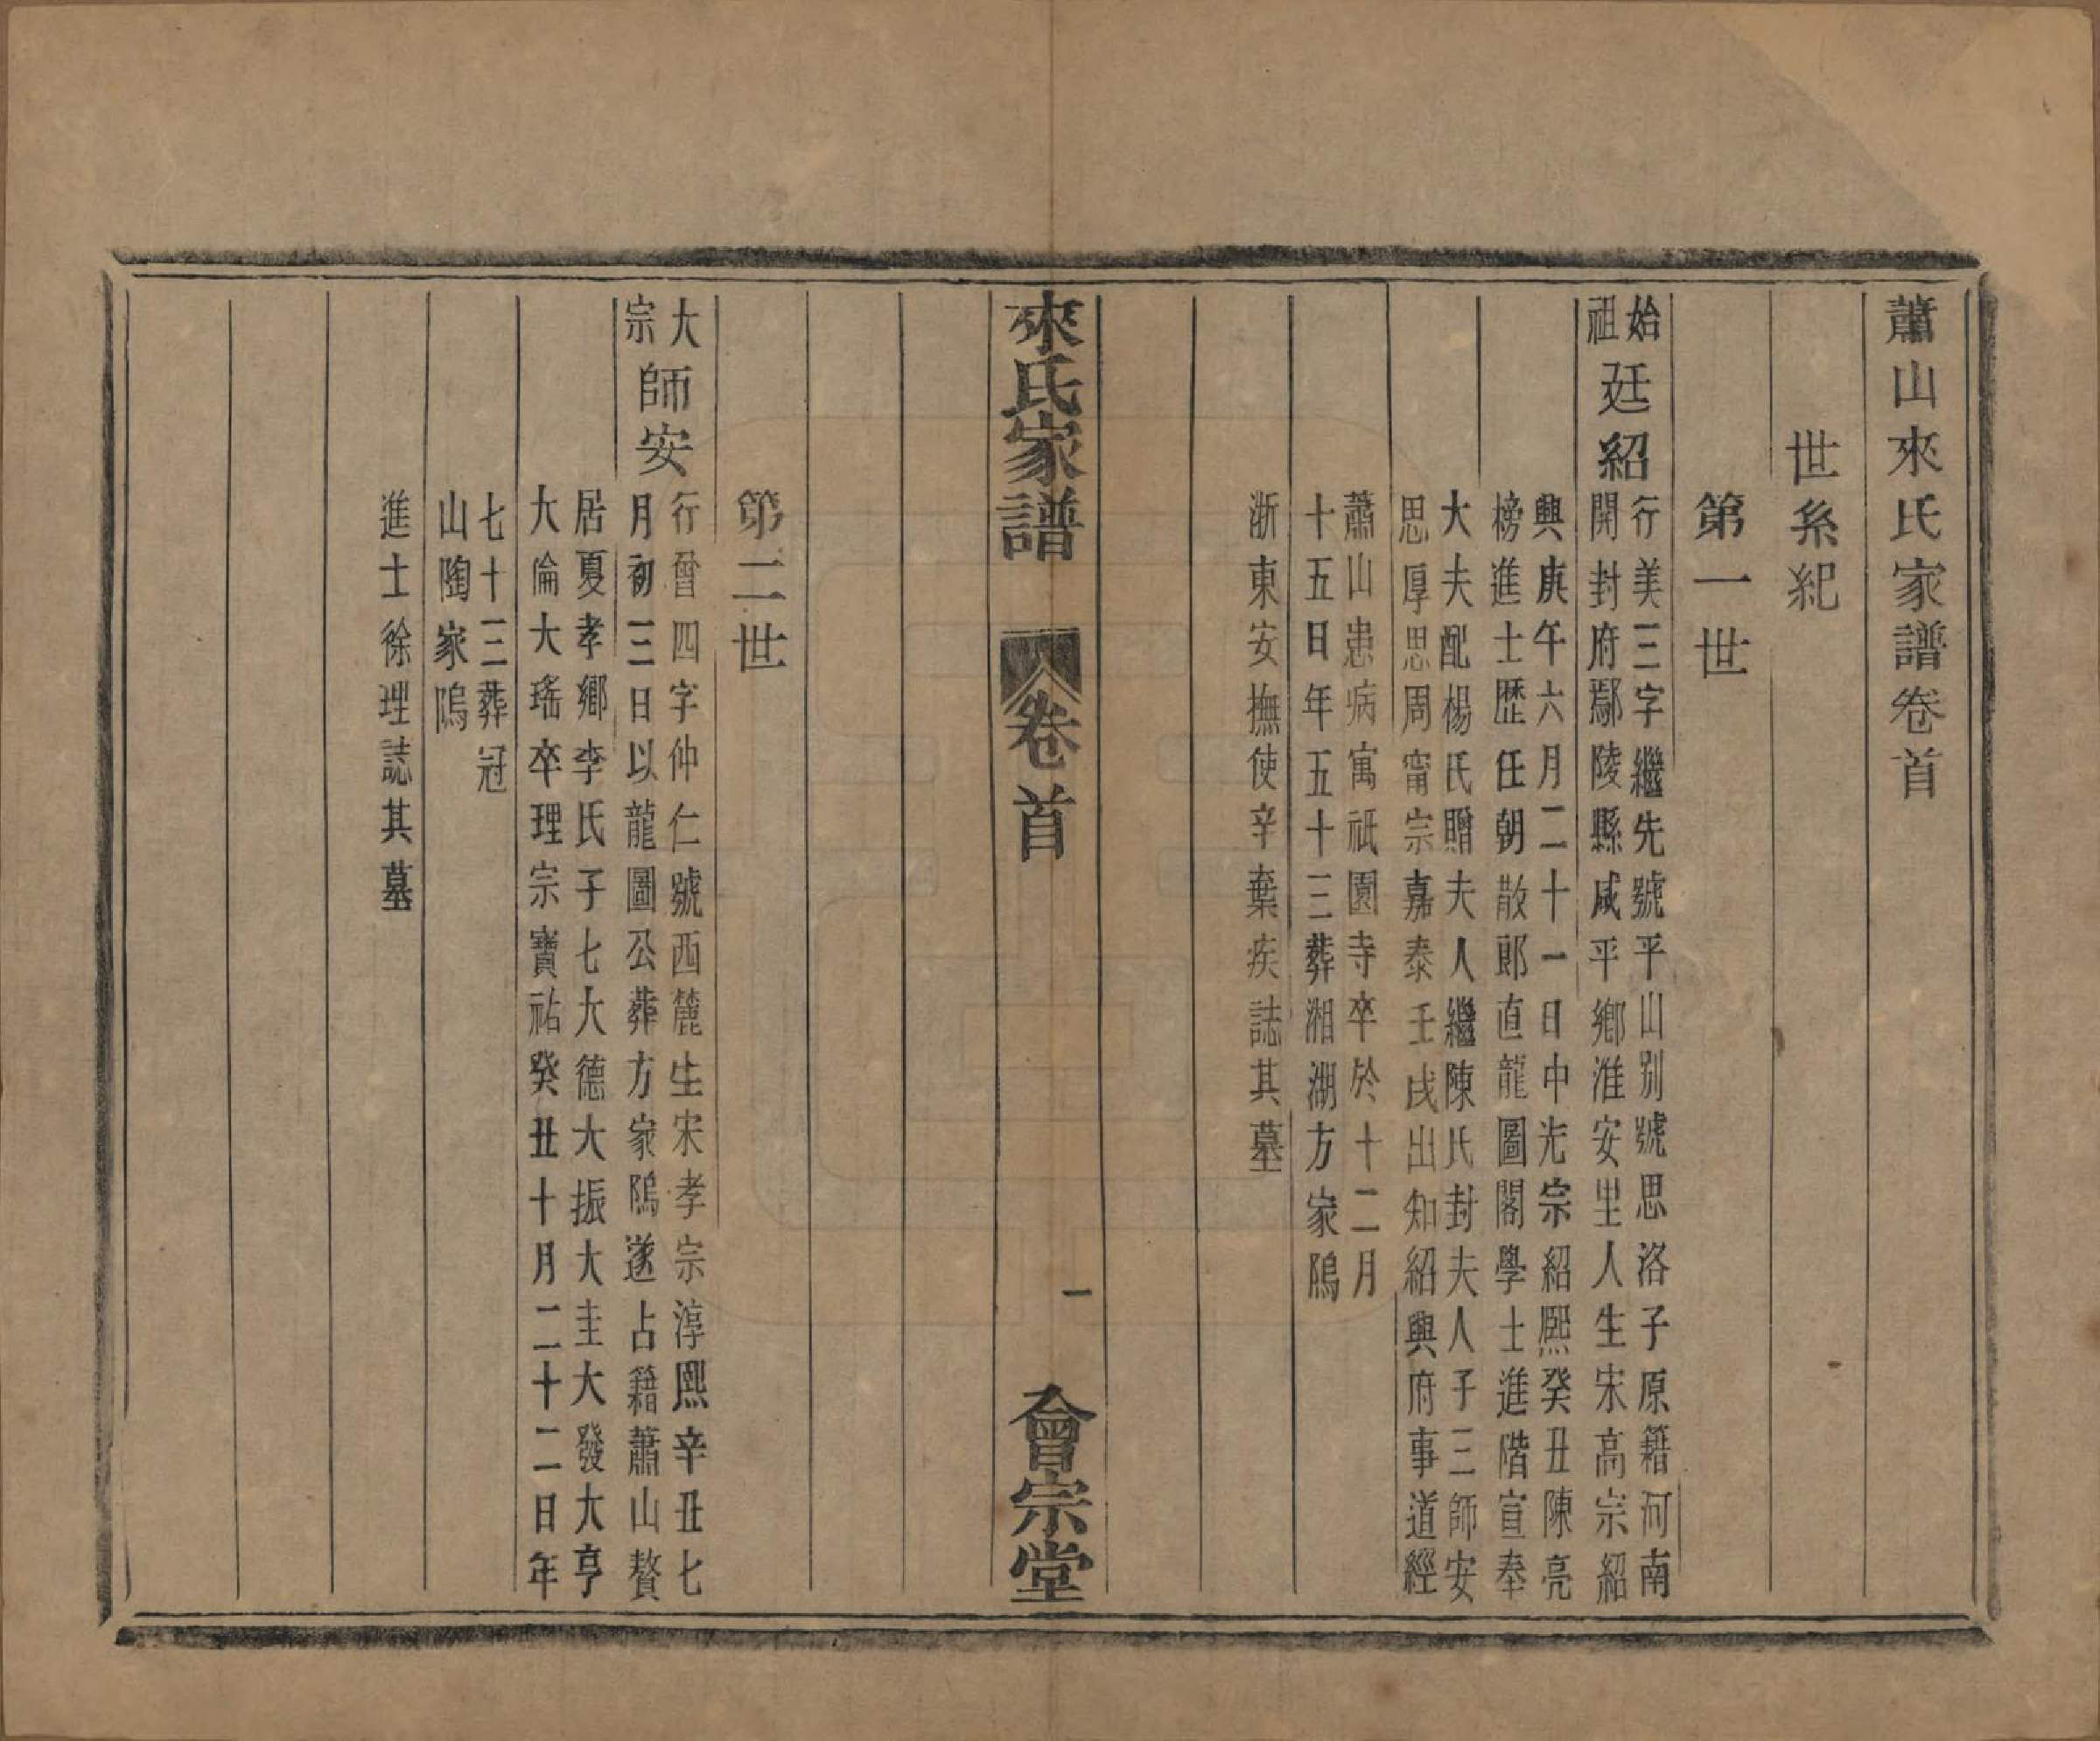 蕭山來氏家譜卷首
世系紀
第一世
始祖
廷紹
行美三字繼先號平山別號思洛子原籍河南
開封府鄢陵縣咸平鄉淮安里人生宋高宗紹
興庚午六月二十一日中光宗紹熙癸丑陳亮
榜進士歷任朝散郎直龍圖閣學士進階宣奉
大夫配楊氏贈夫人繼陳氏封夫人子三師安
思厚思周甯宗嘉泰壬戌出知紹興府事道經
蕭山患病寓祇園寺卒於十二月
十五日年五十三葬湘湖方家隝
浙東安撫使辛棄疾誌其墓
來氏家譜
卷首
一
會宗堂
第二世
大宗
師安
行曾四字仲仁號西麓生宋孝宗淳熙辛丑七
月初三日以龍圖公葬方家隝遂占籍蕭山贅
居夏孝鄉李氏子七大德大振大圭大發大亨
大倫大瑤卒理宗寶祐癸丑十月二十二日年
七十三葬冠
山陶家隝
進士徐理誌其墓